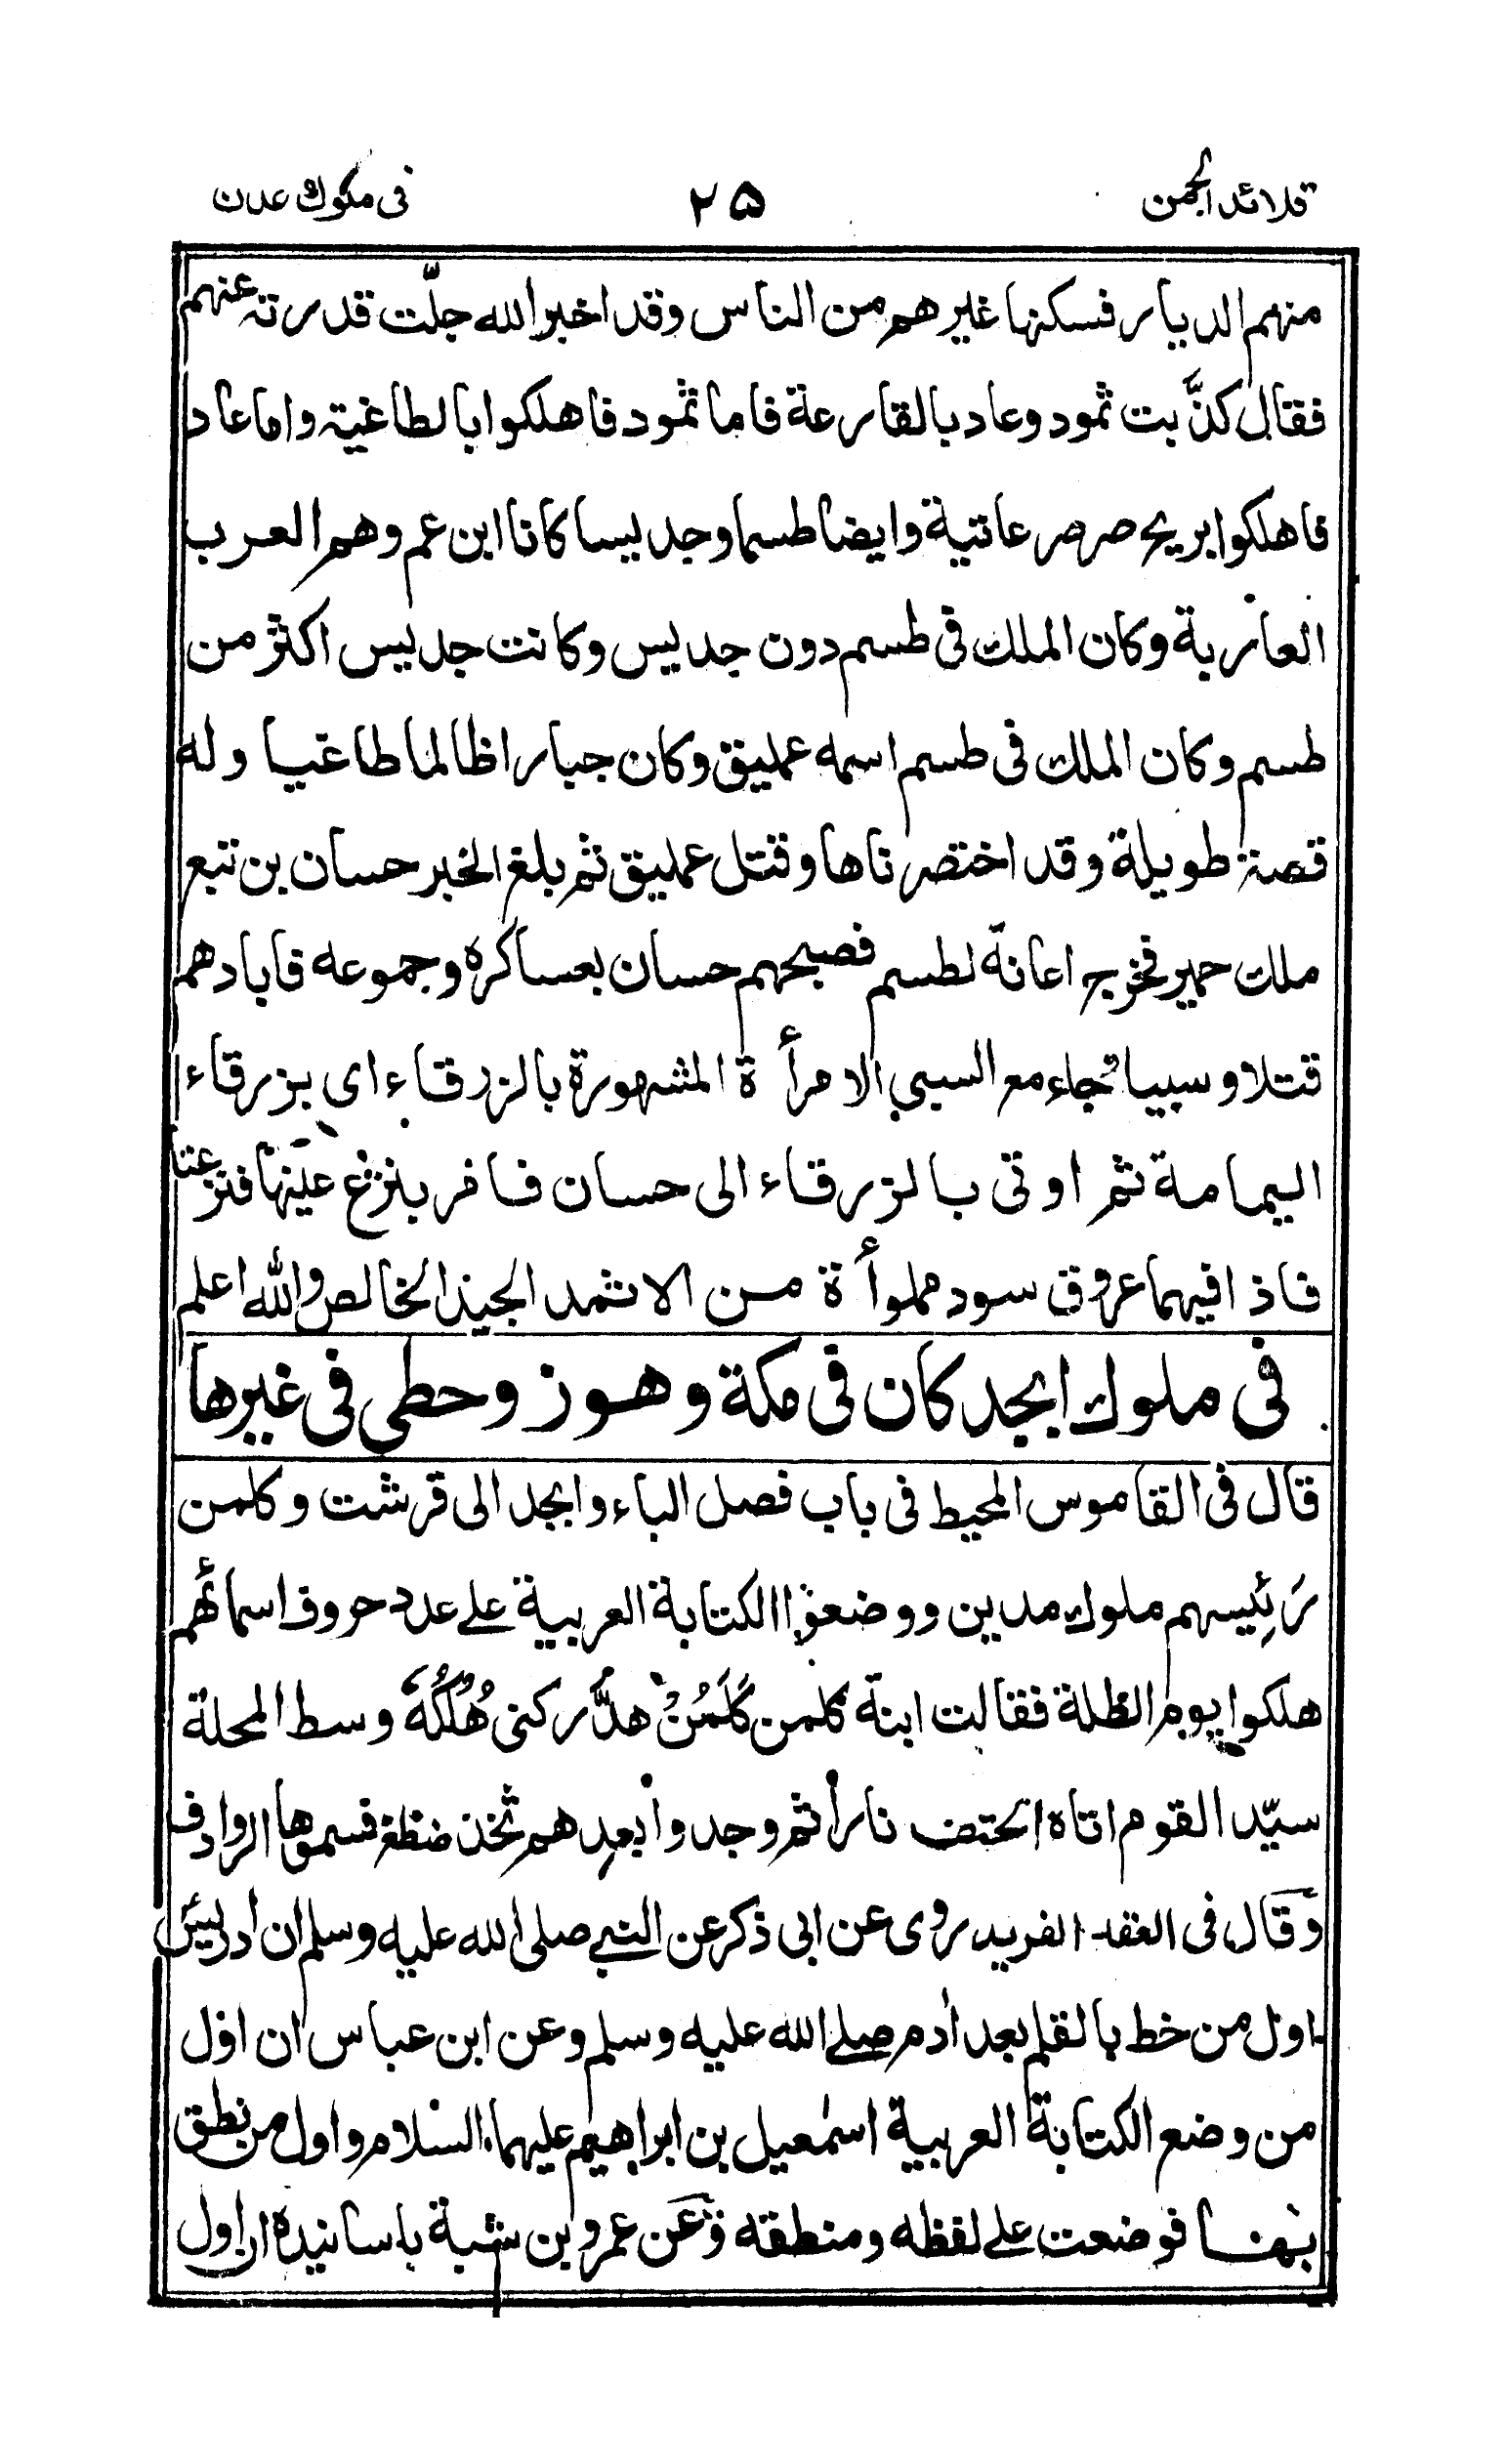 قلائد الجمن ٢٥ فى ملوك عدن
منهم الديار فسكنها غيرهم من الناس وقد اخبر الله جلّت قدرته عنهم
فقال كذَّبت ثمود وعاد بالقارعة فاما ثمود فاهلكوا بالطاغية واما عاد
فاهلكوا بريح صرصر عاتية وايضا طسما وجديسا كانا ابن عم وهم العرب
العاربة وكان الملك فى طسم دون جديس وكانت جديس اكثر من
طسم وكان الملك فى طسم اسمه عمليق وكان جبارا ظالما طاغيا وله
قصة طويلة وقد اختصرناها وقتل عمليق ثم بلغ الخبر حسان بن تبع
ملك حمير فخرج اعانة لطسم فصبحهم حسان بعساكره وجموعه فابادهم
قتلا وسبيا فجاء مع السبي الامرأة المشهورة بالزرقاء اى بزرقاء
اليمامة ثم اوتى بالزرقاء الى حسان فامر بنزع عينها فنزعتا
فاذا فيهما عروق سود مملوأة من الاثمد الجيد الخالص والله اعلم
فى ملوك ابجد كان فى مكة وهوز وحطى فى غيرها
قال فى القاموس المحيط فى باب فصل الباء وابجد الى قرشت وكلمن
رَئِيسهم ملوك مدين ووضعوا الكتابة العربية على عدد حروف اسمائهم
هلكوا يوم الظلة فقالت ابنة كلمن كَلَمُنْ هدَّ ركنى هُلْكُهُ وسط المحلة
سيّد القوم اتاه الحتف نارا ثم وجدوا بعدهم ثخذ ضظغ فسموها الروادف
وقال فى العقد الفريد روى عن ابى ذكر عن النبى صلى الله عليه وسلم ان ادريس
اول من خط بالقلم بعد ادم صلى الله عليه وسلم وعن ابن عباس ان اول
من وضع الكتابة العربية اسمٰعيل بن ابراهيم عليهما السلام واول من نطق
بها فوضعت على لفظه ومنطقه وعن عمرو بن شبة باسانيده ان اول